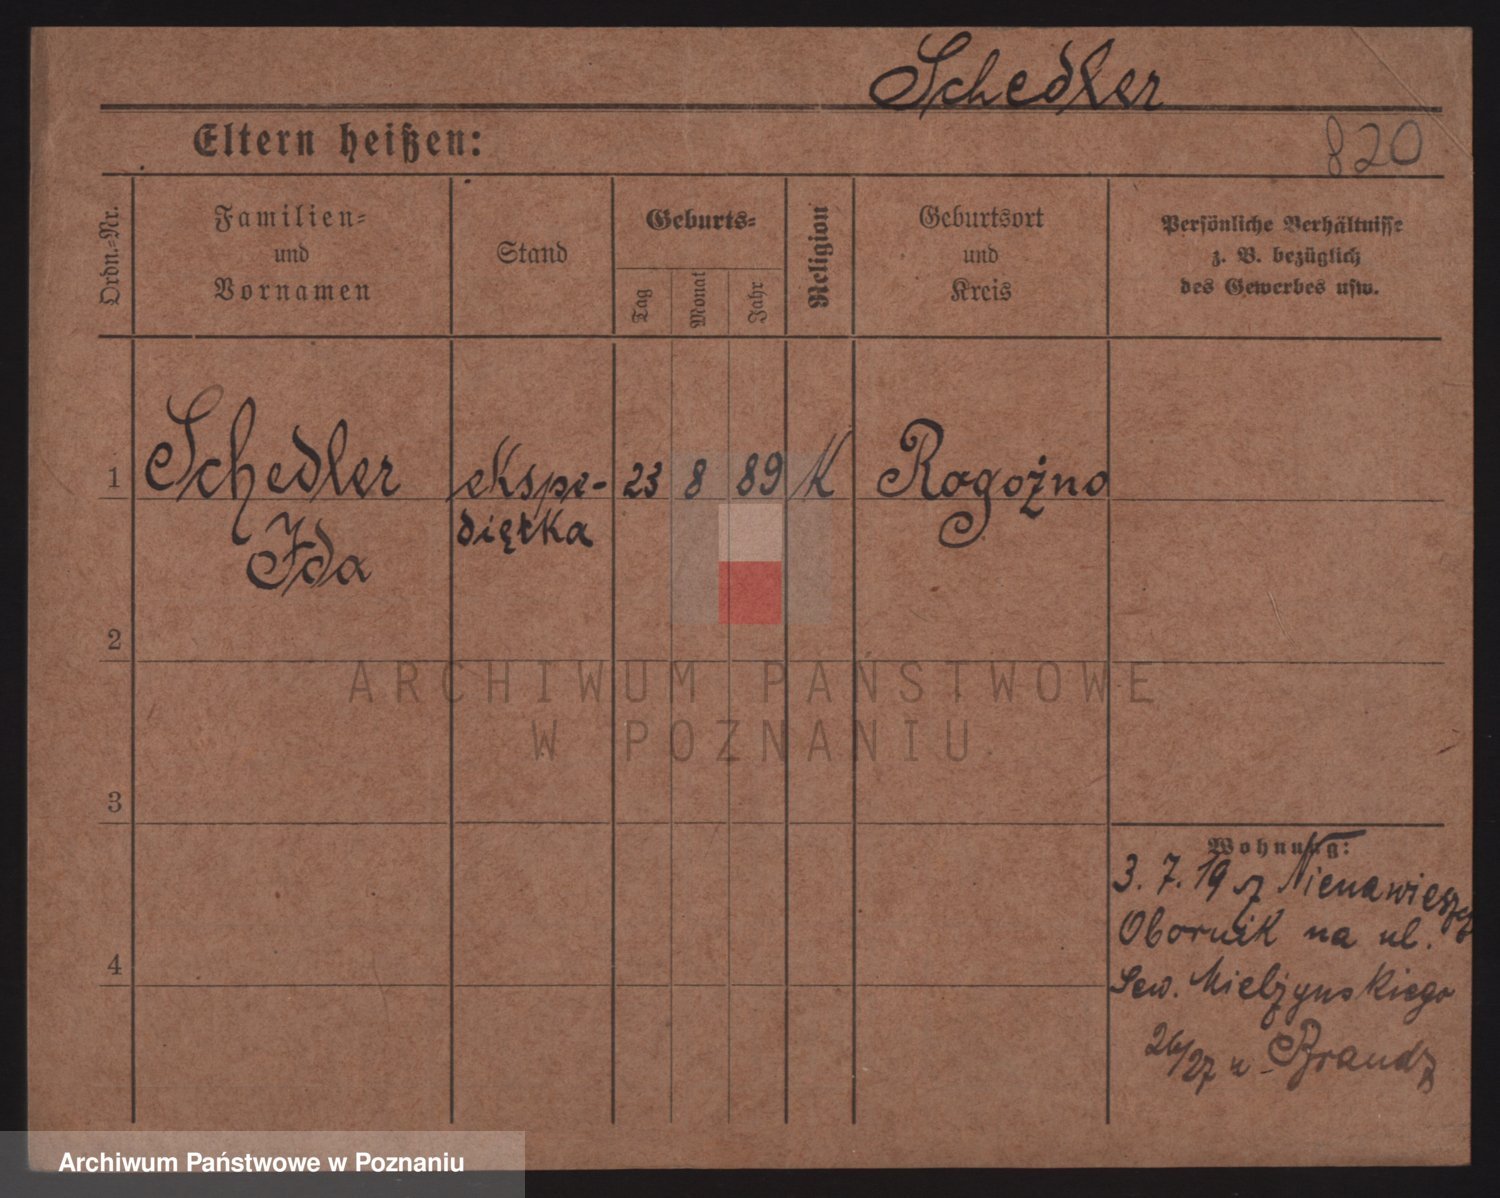 Schedler
Eltern heißen:
820
Ordn.=Nr.
Familien=
und
Vornamen
Stand
Geburts=
Tag
Monat
Jahr
Religion
Geburtsort
und
Kreis
Persönliche Verhältnisse
z. B. bezüglich
des Gewerbes usw.
1 Schedler ekspe- 23 8 89 K Rogoźno
Ida djętka
2
ARCHIWUM PAŃSTWOWE
W POZNANIU
3
Wohnung:
3. 7. 19 z
Obornik na ul.
4
Sew. Mielżynskiego
26/27 u
Archiwum Państwowe w Poznaniu